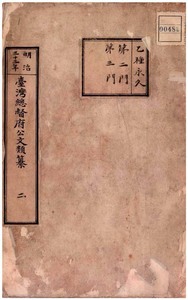 00484
乙種永久
第二門
第三門
明治
三十三年
臺灣總督府公文類纂
二